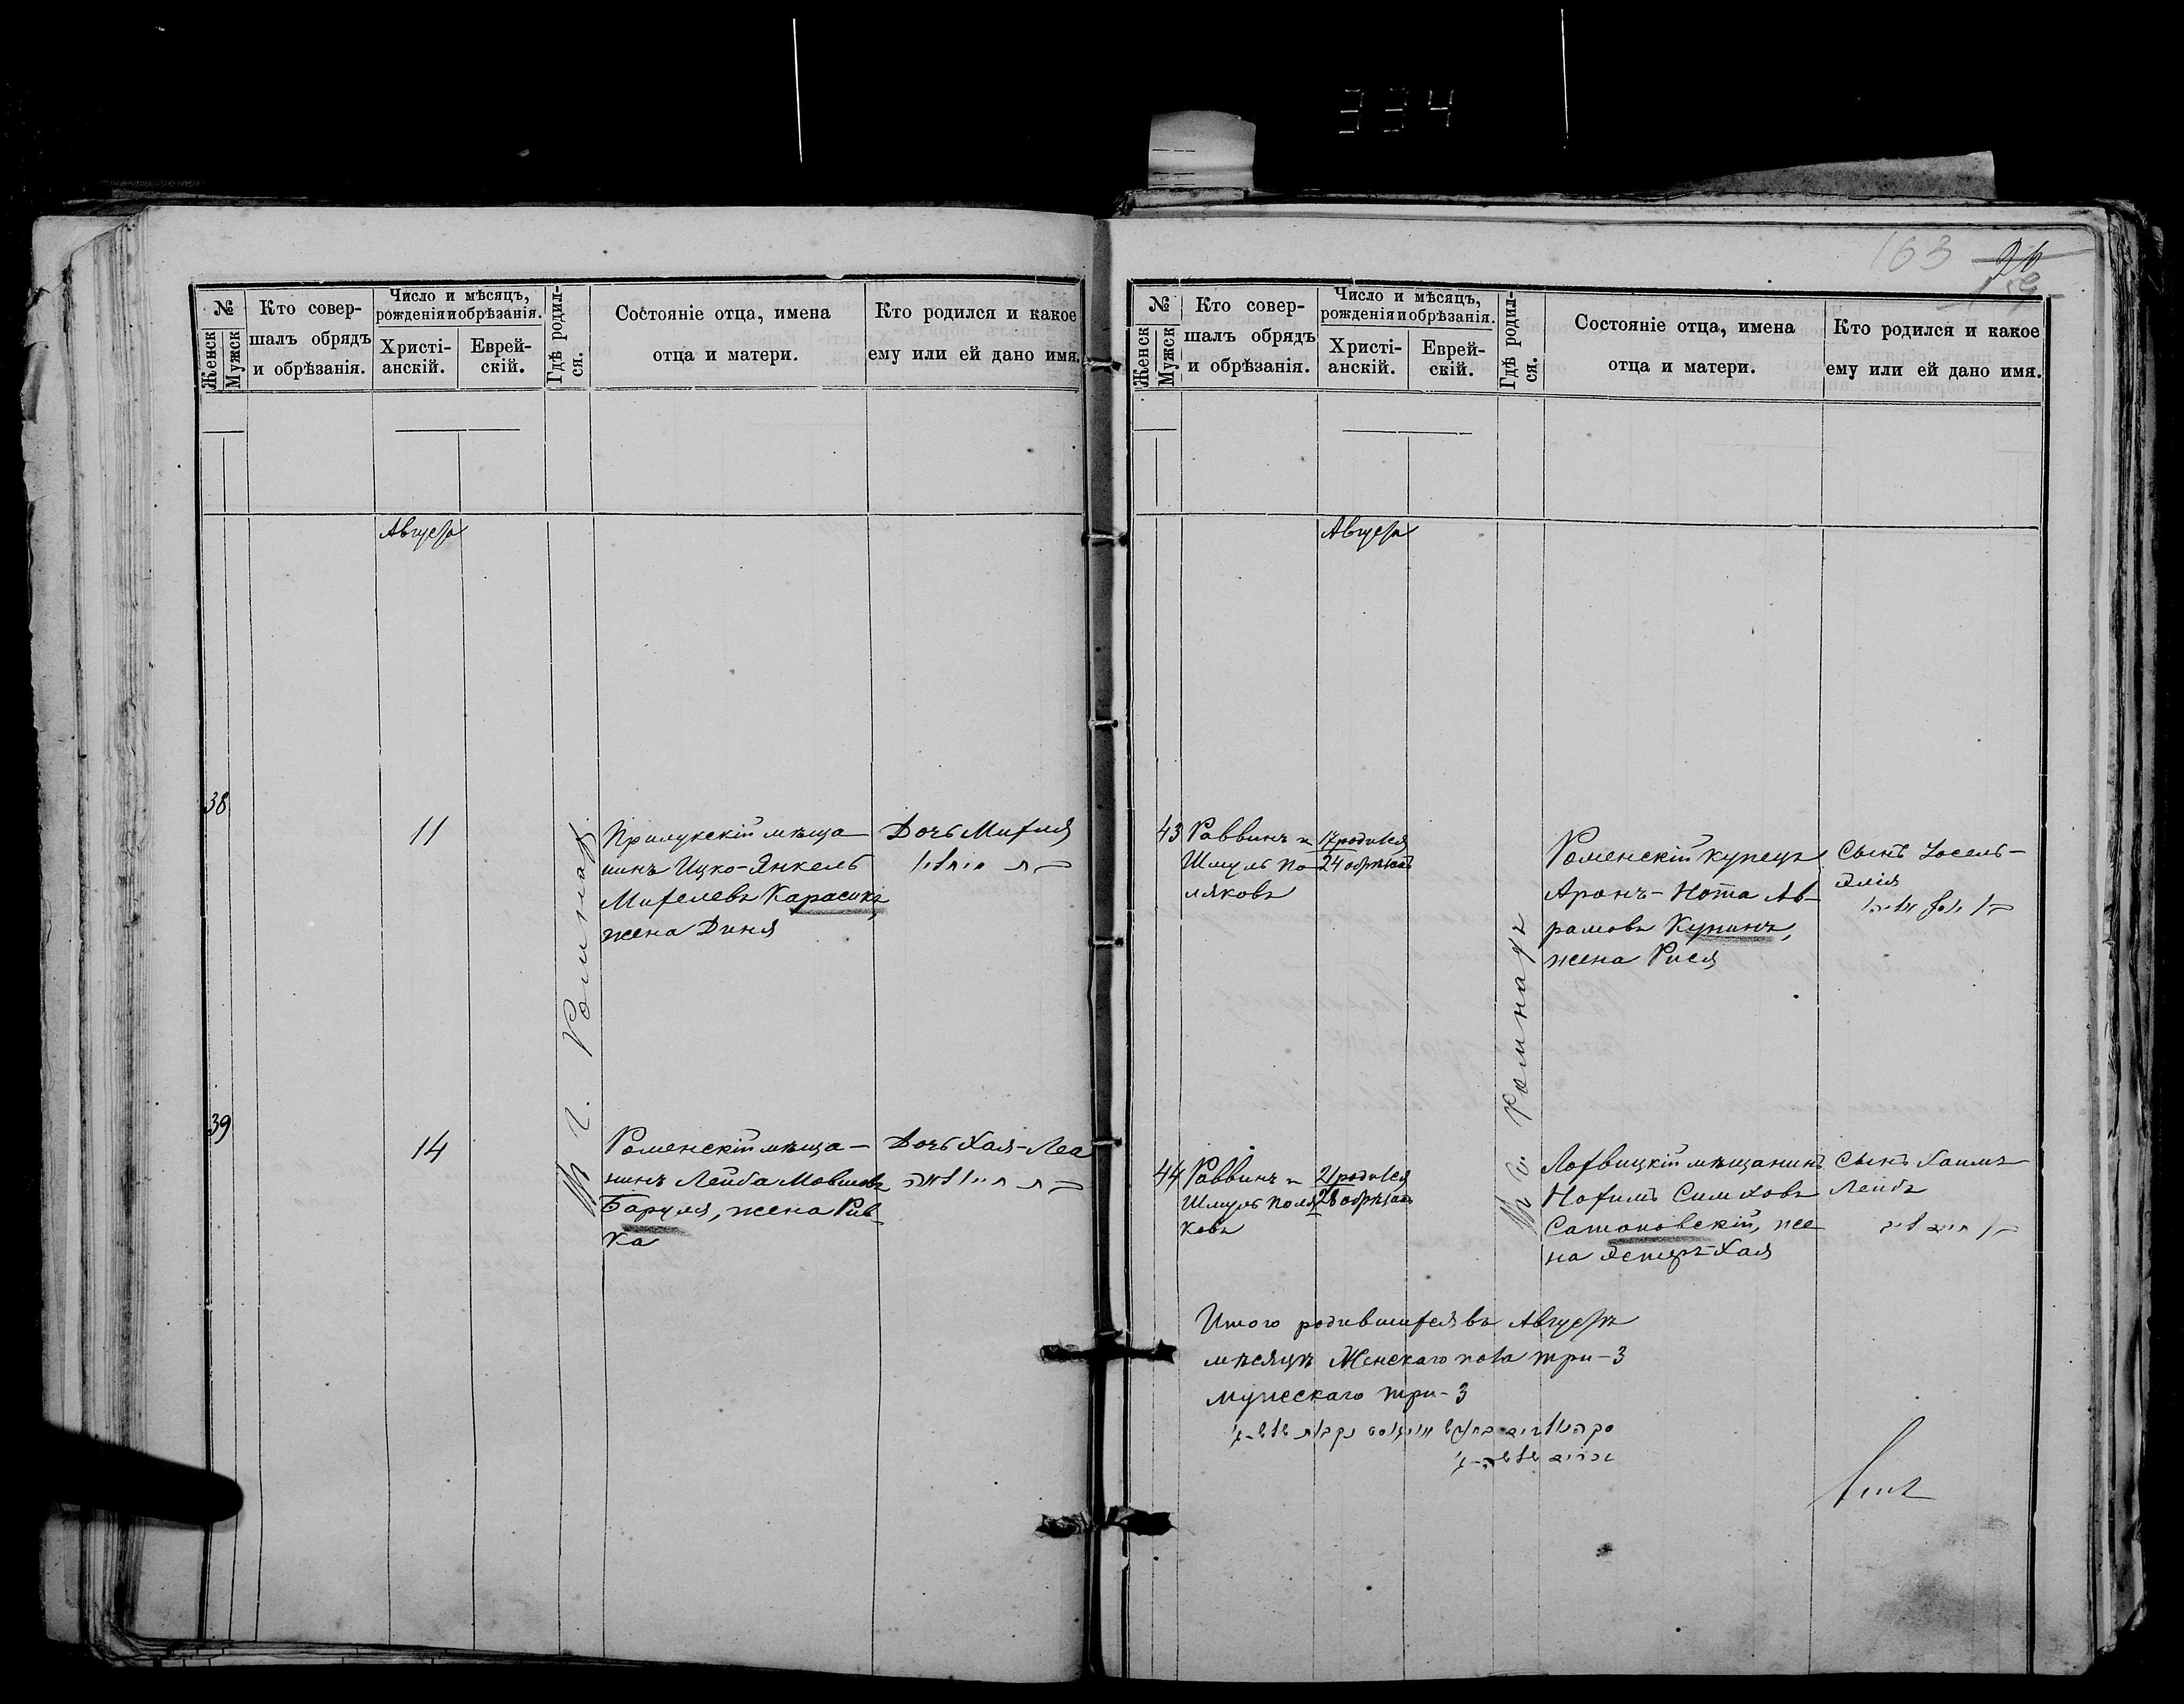 334
№
Женск
Мужск
Кто совер-
шалъ обрядъ
и обрѣзанія.
Число и мѣсяцъ,
рожденія и обрѣзанія.
Христі-
анскій.
Еврей-
скій.
Гдѣ родил-
ся.
Состояніе отца, имена
отца и матери.
Кто родился и какое
ему или ей дано имя.
Августа
38
11
Въ г. Ромнахъ
Прилукскій мѣща-
нинъ Ицко-Янкель
Михелевъ Карасикъ,
жена Диня
Дочь Михля
39
14
Роменскій мѣща-
нинъ Лейба Мовшовъ
Баруля, жена Рив-
ка
Дочь Хая-Леа
163
24
159
№
Женск
Мужск
Кто совер-
шалъ обрядъ
и обрѣзанія.
Число и мѣсяцъ,
рожденія и обрѣзанія.
Христі-
анскій.
Еврей-
скій.
Гдѣ родил-
ся.
Состояніе отца, имена
отца и матери.
Кто родился и какое
ему или ей дано имя.
Августа
43
Раввинъ и
Шмуль По-
ляковъ
17 родился
24 обрѣзанъ
Въ г. Ромнахъ
Роменскій купецъ
Аронъ-Нота Ав-
рамовъ Купинъ,
жена Рися
Сынъ Іосель-
Элія
44
Раввинъ и
Шмуль Поля-
ковъ
21 родился
28 обрѣзанъ
Лохвицкій мѣщанинъ
Нохимъ Симховъ
Сатановскій, же-
на Эстеръ-Хая
Сынъ Хаимъ
Лейбъ
Итого родившихся въ Августѣ
мѣсяцѣ Женскаго пола три-3
мужескаго три-3